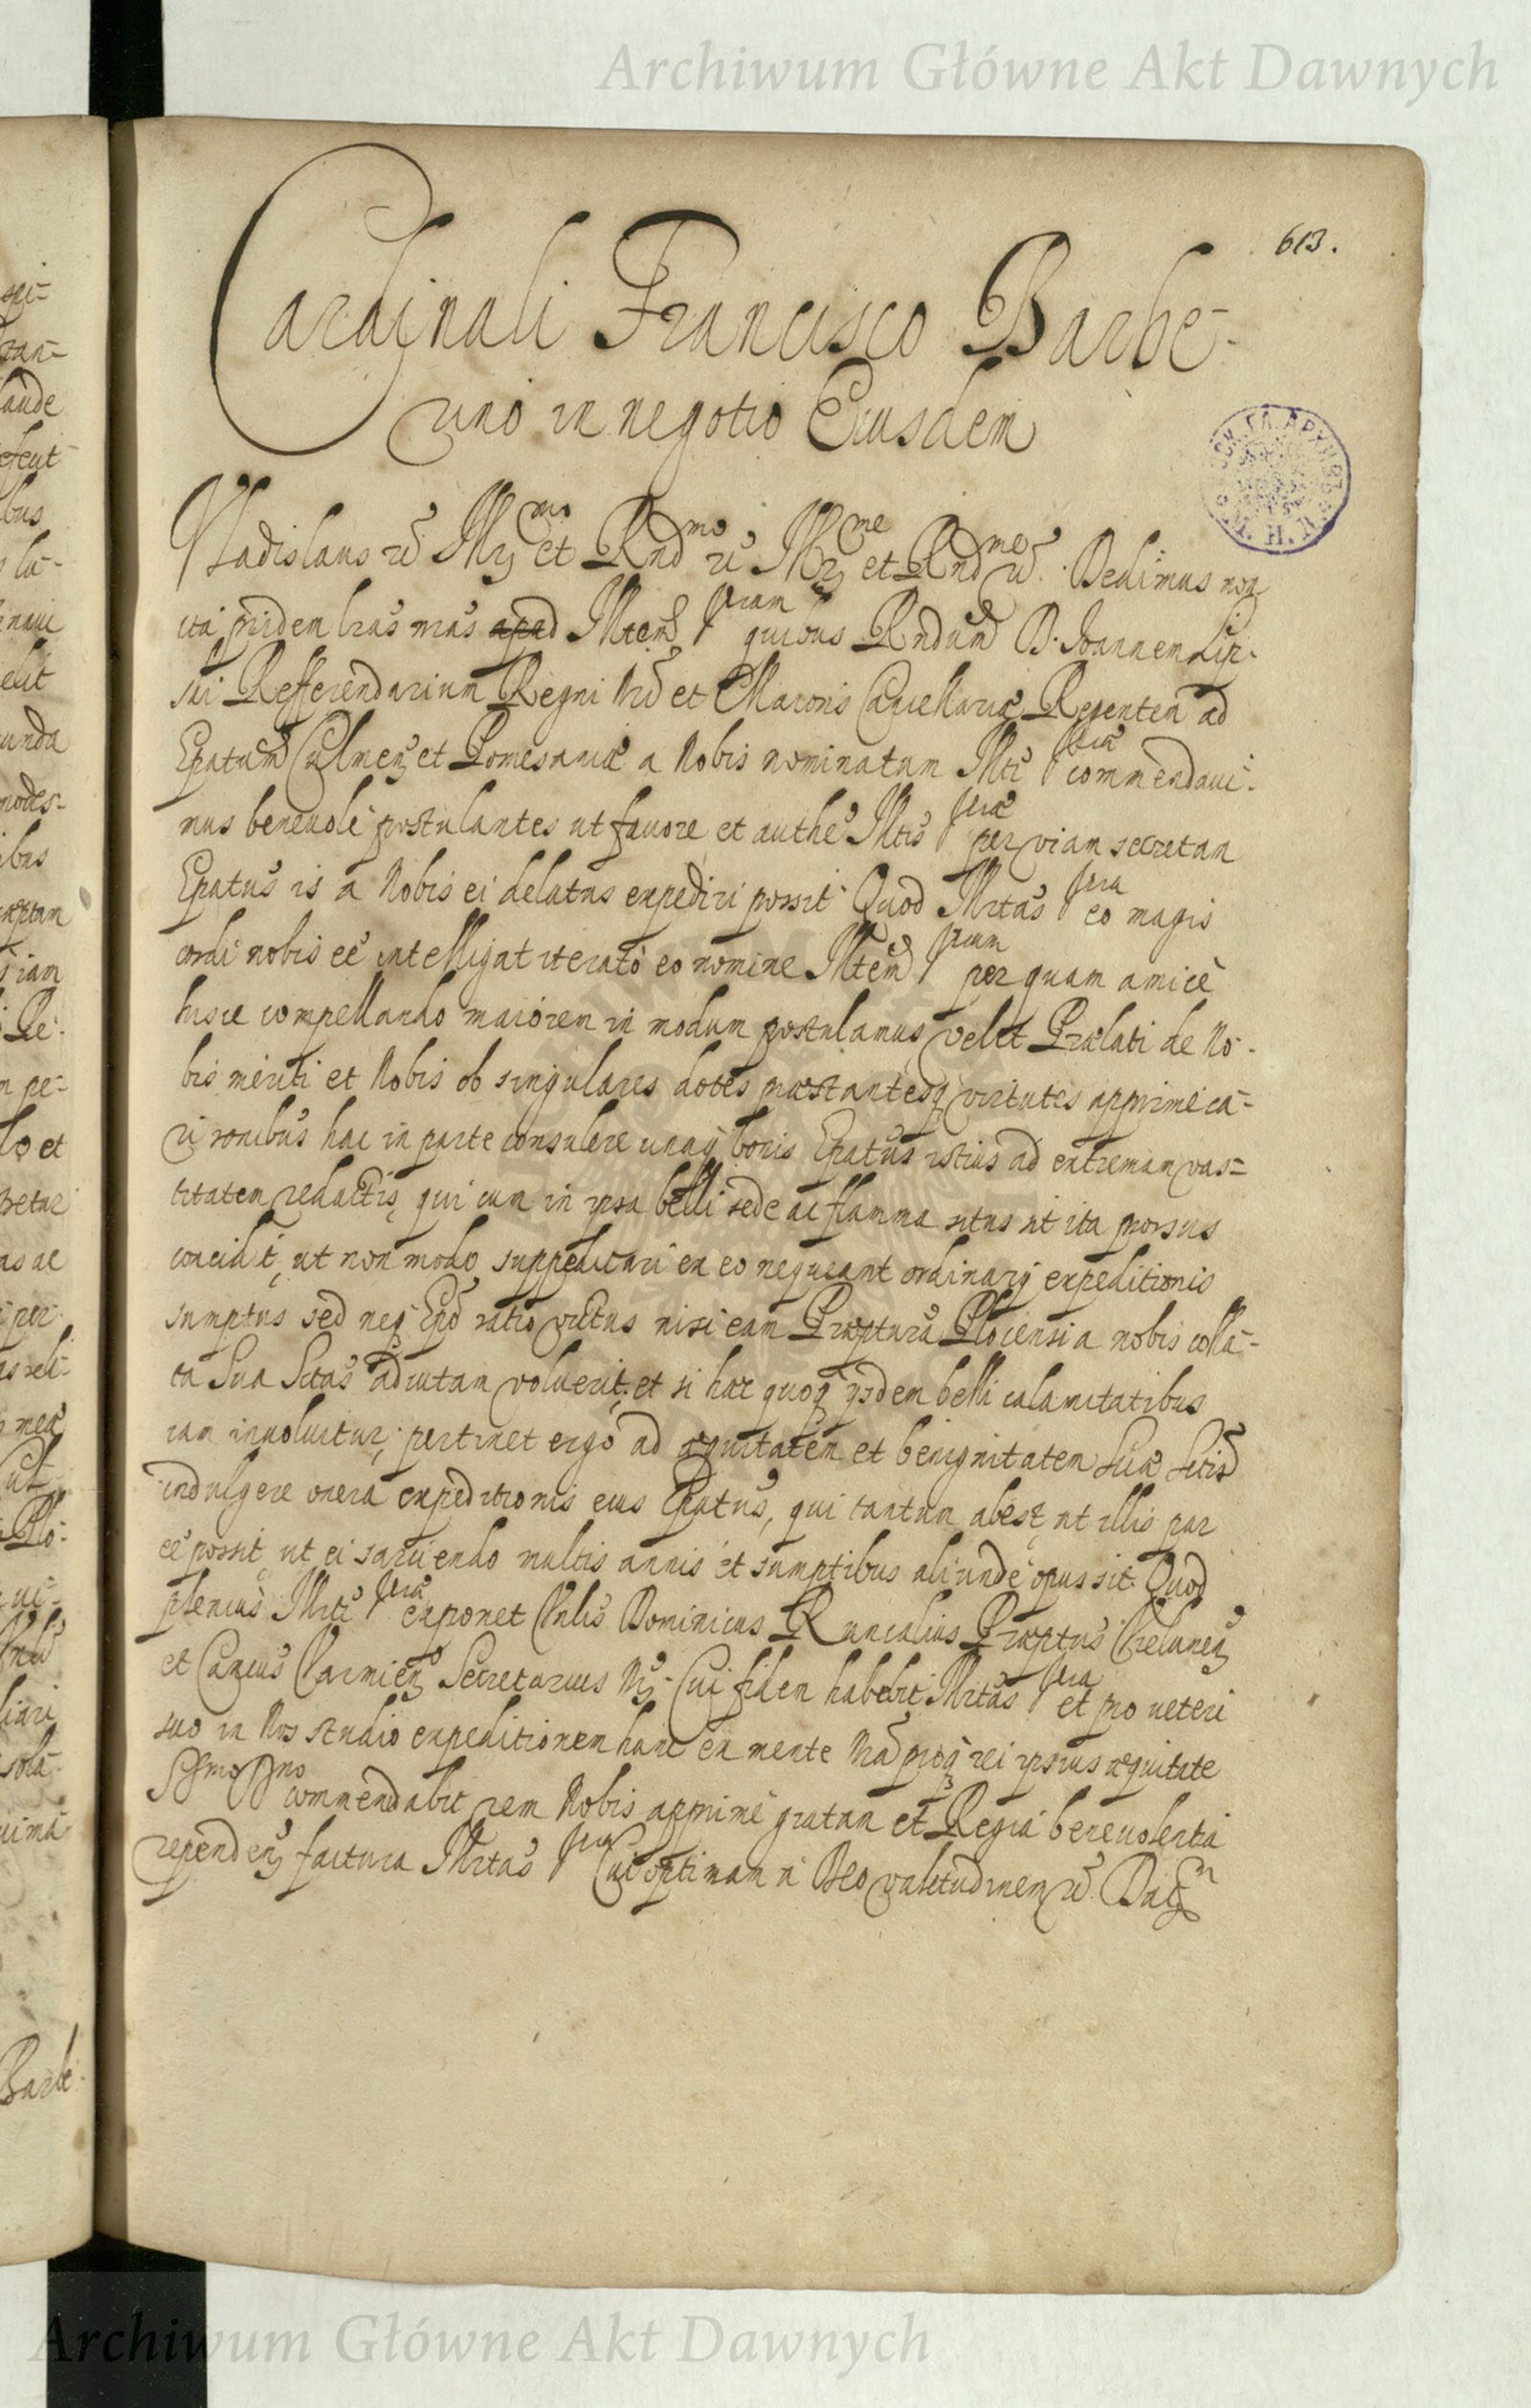 Archiwum Główne Akt Dawnych
613.
Cardinali Francisco Barbe-
rino in negotio Eiusdem
Vladislaus etc. Illr et Rnd mo etc. Illr me et Rnd me etc. Dedimus non
ita pridem lras nras apud Illtem Vram quibus Rndum D. Joannem Lip-
ski Refferendarium Regni Nri et Maioris Cancellariæ Regentem ad
Epatum Culmen et Pomesaniæ a Nobis nominatum Illti Vræ commendavi-
mus benevolè postulantes ut favore et authe Illtis Vræ per viam secretam
Epatus is a Nobis ei delatus expediri possit. Quod Illtas Vra eò magis
cordi nobis eē intelligat iteratò eo nomine Illtem Vram per quam amicè
hisce compellando maiorem in modum postulamus, velit Prælati de No-
bis meriti et Nobis ob singulares dotes præstantesq virtutes apprimè ca-
ri ronibus hac in parte consulere unaq bonis Epatus istius ad extremam vas-
titatem redactis, qui cum in ipsa belli sede ac flamma situs sit ita prorsus
concidit, ut non modo suppeditari ex eo nequeant ordinarij expeditionis
sumptus sed neq Epo ratio victus nisi eam Præptura Plocensi a nobis colla-
ta Sua Sctas adiutam voluerit, et si hæc quoq ijsdem belli calamitatibus
iam involuitur; pertinet ergò ad æquitatem et benignitatem Suæ Sctis
indulgere onera expeditionis eius Epatus, qui tantum abest, ut illis par
eē possit, ut ei sarciendo multis annis et sumptibus aliunde opus sit. Quod
plenius Illti Vræ exponet Vnlis Dominicus Roncalius Præptus Chelmen
et Cancus Varmien Secretarius Nr. Cui fidem habebit Illtas Vra et pro veteri
suo in Nos studio expeditionem hanc ex mente Nra proq rei ipsius æquitate
Ssmo Dno commendabit rem Nobis apprimè gratam et Regia benevolentia
rependen factura Illtas Vra Cui optimam a Deo valetudinem etc. Dat
Archiwum Główne Akt Dawnych